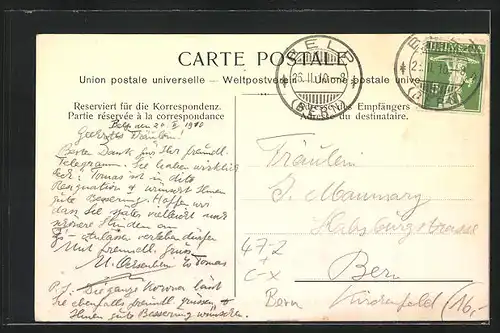 CARTE POSTALE
Union postale universelle – Weltpostverein – Unione postale universale
Reserviert für die Korrespondenz.
Partie réservée à la correspondance
Adresse des Empfängers
Adresse du destinataire.
BELP
26.II.10.-8
(BERN)
BELP
(BERN)
Belp, den
Geehrtes Fräulein!
Besten Dank für Ihr freundl.
Telegramm. Sie haben wirklich
Tomas ist in
Resignation & wünscht Ihnen
gute Besserung. Hoffen wir
dass Sie später vielleicht
Stunden
verleben dürfen
Mit freundl. Gruss
Tomas
P.S. Die ganze Korona lässt
Sie ebenfalls freundl. grüssen &
Ihnen gute Besserung wünschen.
Fräulein
Habsburgstrasse
Bern
Bern Kirchenfeld
47-2
+
C-X
16.-